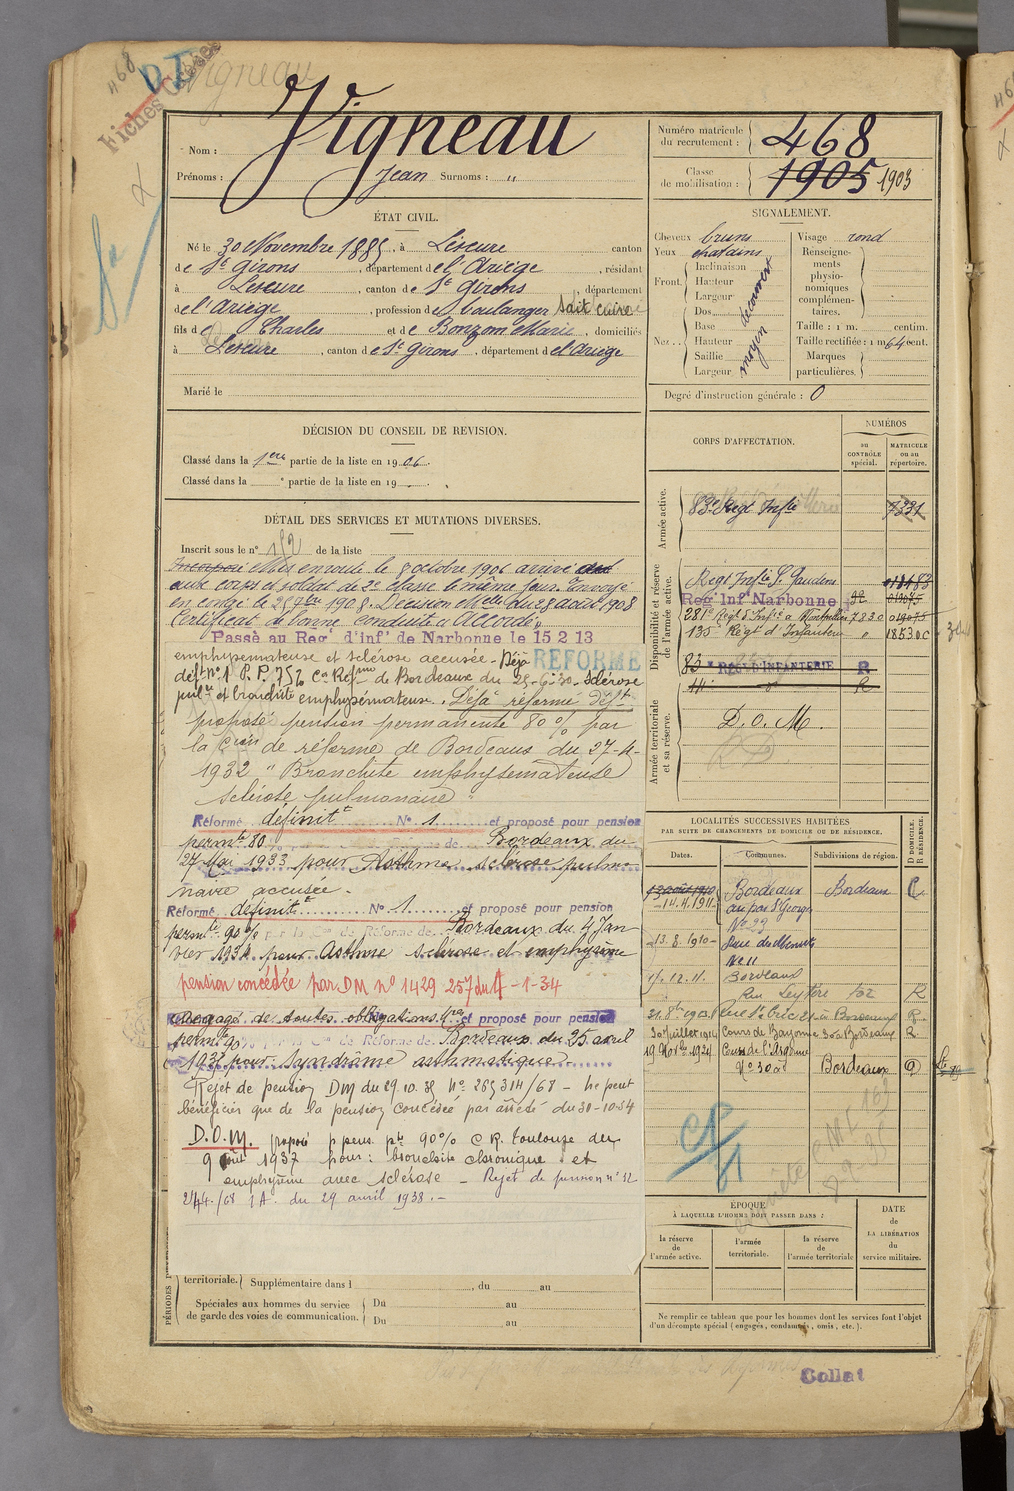 468
DI
Vigneau
Fiches
Nom : Vigneau
Prénoms : Jean Surnoms : "
Numéro matricule du recrutement : 468
Classe de mobilisation : 1905 1903
ÉTAT CIVIL.
Né le 30 Novembre 1885, à Lescure canton
de St Girons, département de l'Ariège, résidant
à Lescure, canton de St Girons, département
de l'Ariège, profession de boulanger
fils de Charles et de Bonzom Marie, domiciliés
à Lescure, canton de St Girons, département de l'Ariège
Marié le
SIGNALEMENT.
Cheveux bruns
Yeux chatains
Front. Inclinaison
Hauteur
Largeur
découvert
Nez.. Dos
Base
Hauteur
Saillie
Largeur
moyen
Visage rond
Renseignements physionomiques complémentaires.
Taille : 1 m. centim.
Taille rectifiée : 1 m 64 cent.
Marques particulières.
Degré d'instruction générale : 0
DÉCISION DU CONSEIL DE REVISION.
Classé dans la 1ère partie de la liste en 1906.
Classé dans la e partie de la liste en 19
DÉTAIL DES SERVICES ET MUTATIONS DIVERSES.
Inscrit sous le n° 152 de la liste
Incorporé Mis en route le 8 octobre 1906 arrivé
aux corps et soldat de 2e classe le même jour. Envoyé
en congé le 25 7bre 1908. Décision Mlle du 28 août 1908
Certificat de bonne conduite "Accordé"
Passé au Reg' d'inf' de Narbonne le 15 2 13
emphysemateuse et sclérose accusée - Déjà REFORMÉ
déft n° 1 P.P. 75% Con Réfme de Bordeaux du 25-6-30 - sclérose
pulre et bronchite emphysémateuse. Déjà réformé déft
proposé pension permanente 80% par
la Cion de réforme de Bordeaux du 27-4-
1932 "Bronchite emphysemateuse
sclérose pulmonaire"
Réformé définitt N° 1 et proposé pour pension
permte 80 Bordeaux du
27 Mai 1933 pour Asthme sclérose pulmo
naire accusée.
Réformé définitt N° 1 et proposé pour pension
permte 90% par la Con de Réforme de Bordeaux du 4 Jan
vier 1934 pour Asthme sclérose et emphysème
pension concédée par DM n° 1429 257 du 4-1-34
Dégagé de toutes obligations et proposé pour pension
permte 90% par la Con de Réforme de Bordeaux du 25 avril
1935 pour syndrôme asthmatique
Rejet de pension DM du 29.10.35 N° 265314/68 - ne peut
bénéficier que de la pension concédée par arrêté du 30-10-34
D.O.M. proposé p pens. pte 90% C.R. Toulouse du
9 août 1937 pour : bronchite chronique et
emphysème avec sclérose - Rejet de pension n° 52
244./68 1A. du 29 avril 1938.-
PÉRIODES
territoriale. Supplémentaire dans l , du au
Spéciales aux hommes du service de garde des voies de communication. Du au
Du au
CORPS D'AFFECTATION.
NUMÉROS
au CONTRÔLE spécial.
MATRICULE ou au répertoire.
Armée active.
83e Régt Infie 7331
Disponibilité et réserve de l'armée active.
Régt Infie St Gaudens 018183
Reg' Inf' Narbonne
281e Régt d'Infie à Montpellier 7830
135e Régt d'Infanterie " 18530c
83 e RÉGt D'INFANTERIE R
Armée territoriale et sa réserve.
D.O.M.
LOCALITÉS SUCCESSIVES HABITÉES
PAR SUITE DE CHANGEMENTS DE DOMICILE OU DE RÉSIDENCE.
Dates. Communes. Subdivisions de région. D DOMICILE. R RÉSIDENCE.
13 août 1910 Bordeaux Bordeaux
14.4.1911
N° 29
13.8.1910
N° 11
15.12.11. Bordeaux
Rue Leyteire 102 R
30 Juillet 1914 Cours de Bayonne 30 à Bordeaux R
19 Novbre 1924 Cours de l'Argonne
N° 30 ad Bordeaux D
ÉPOQUE
À LAQUELLE L'HOMME DOIT PASSER DANS :
la réserve de l'armée active.
l'armée territoriale.
la réserve de l'armée territoriale
DATE de LA LIBÉRATION du service militaire.
Ne remplir ce tableau que pour les hommes dont les services font l'objet
d'un décompte spécial (engagés, condamnés, omis, etc.).
Collat